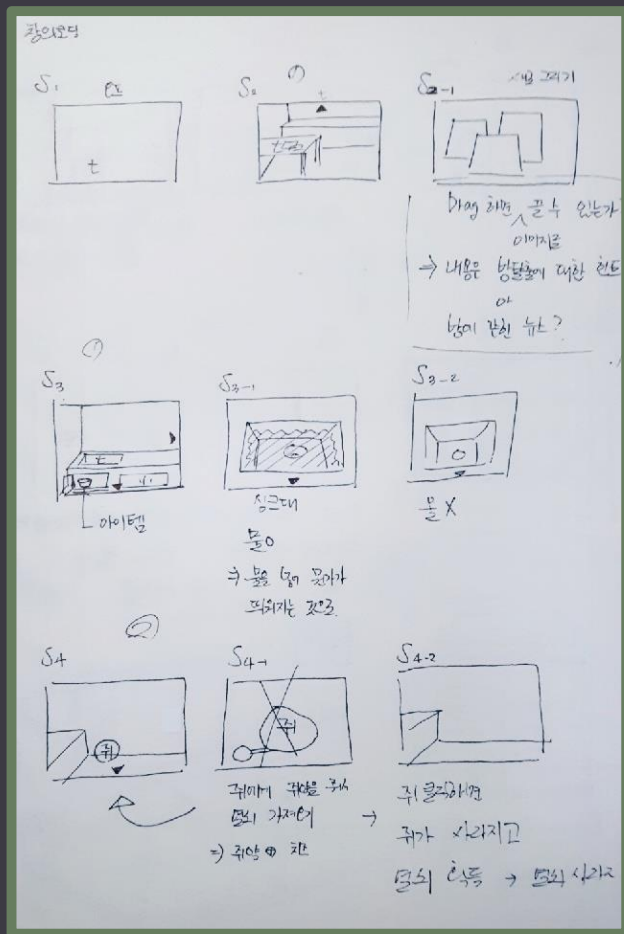 창의코딩
S1
t
S2
t
S2-1
새로 그리기
끌 수 있는가
이미지를
⇒ 내용은 방탈출에 대한 힌트
or
방에 갇힌 뉴스?
S3
t
아이템
S3-1
싱크대
물O
⇒ 물을 넣어 뭔가가
띄워지는 것으로
S3-2
물X
②
S4
쥐
S4-1
쥐
쥐에게 쥐약을 줘서
열쇠 가져오기
⇒ 쥐약 → 치즈
S4-2
쥐 클릭하면
쥐가 사라지고
열쇠 획득 → 열쇠 사라지